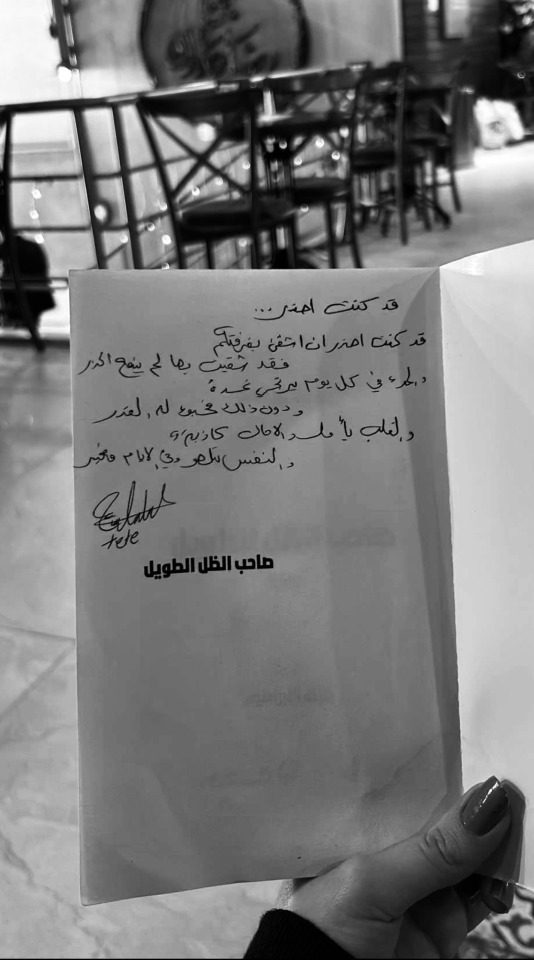 قد كنت احذر...
قد كنت احذر ان اشقى بفرقتكم
فقد شقيت بها لم ينفع الحذر
والمرء في كل يوم يرتجي غده
ودون ذلك مخبوء له القدر
والقلب يأمل والامال كاذبة
والنفس تلهو وفي الايام
tete
صاحب الظل الطويل